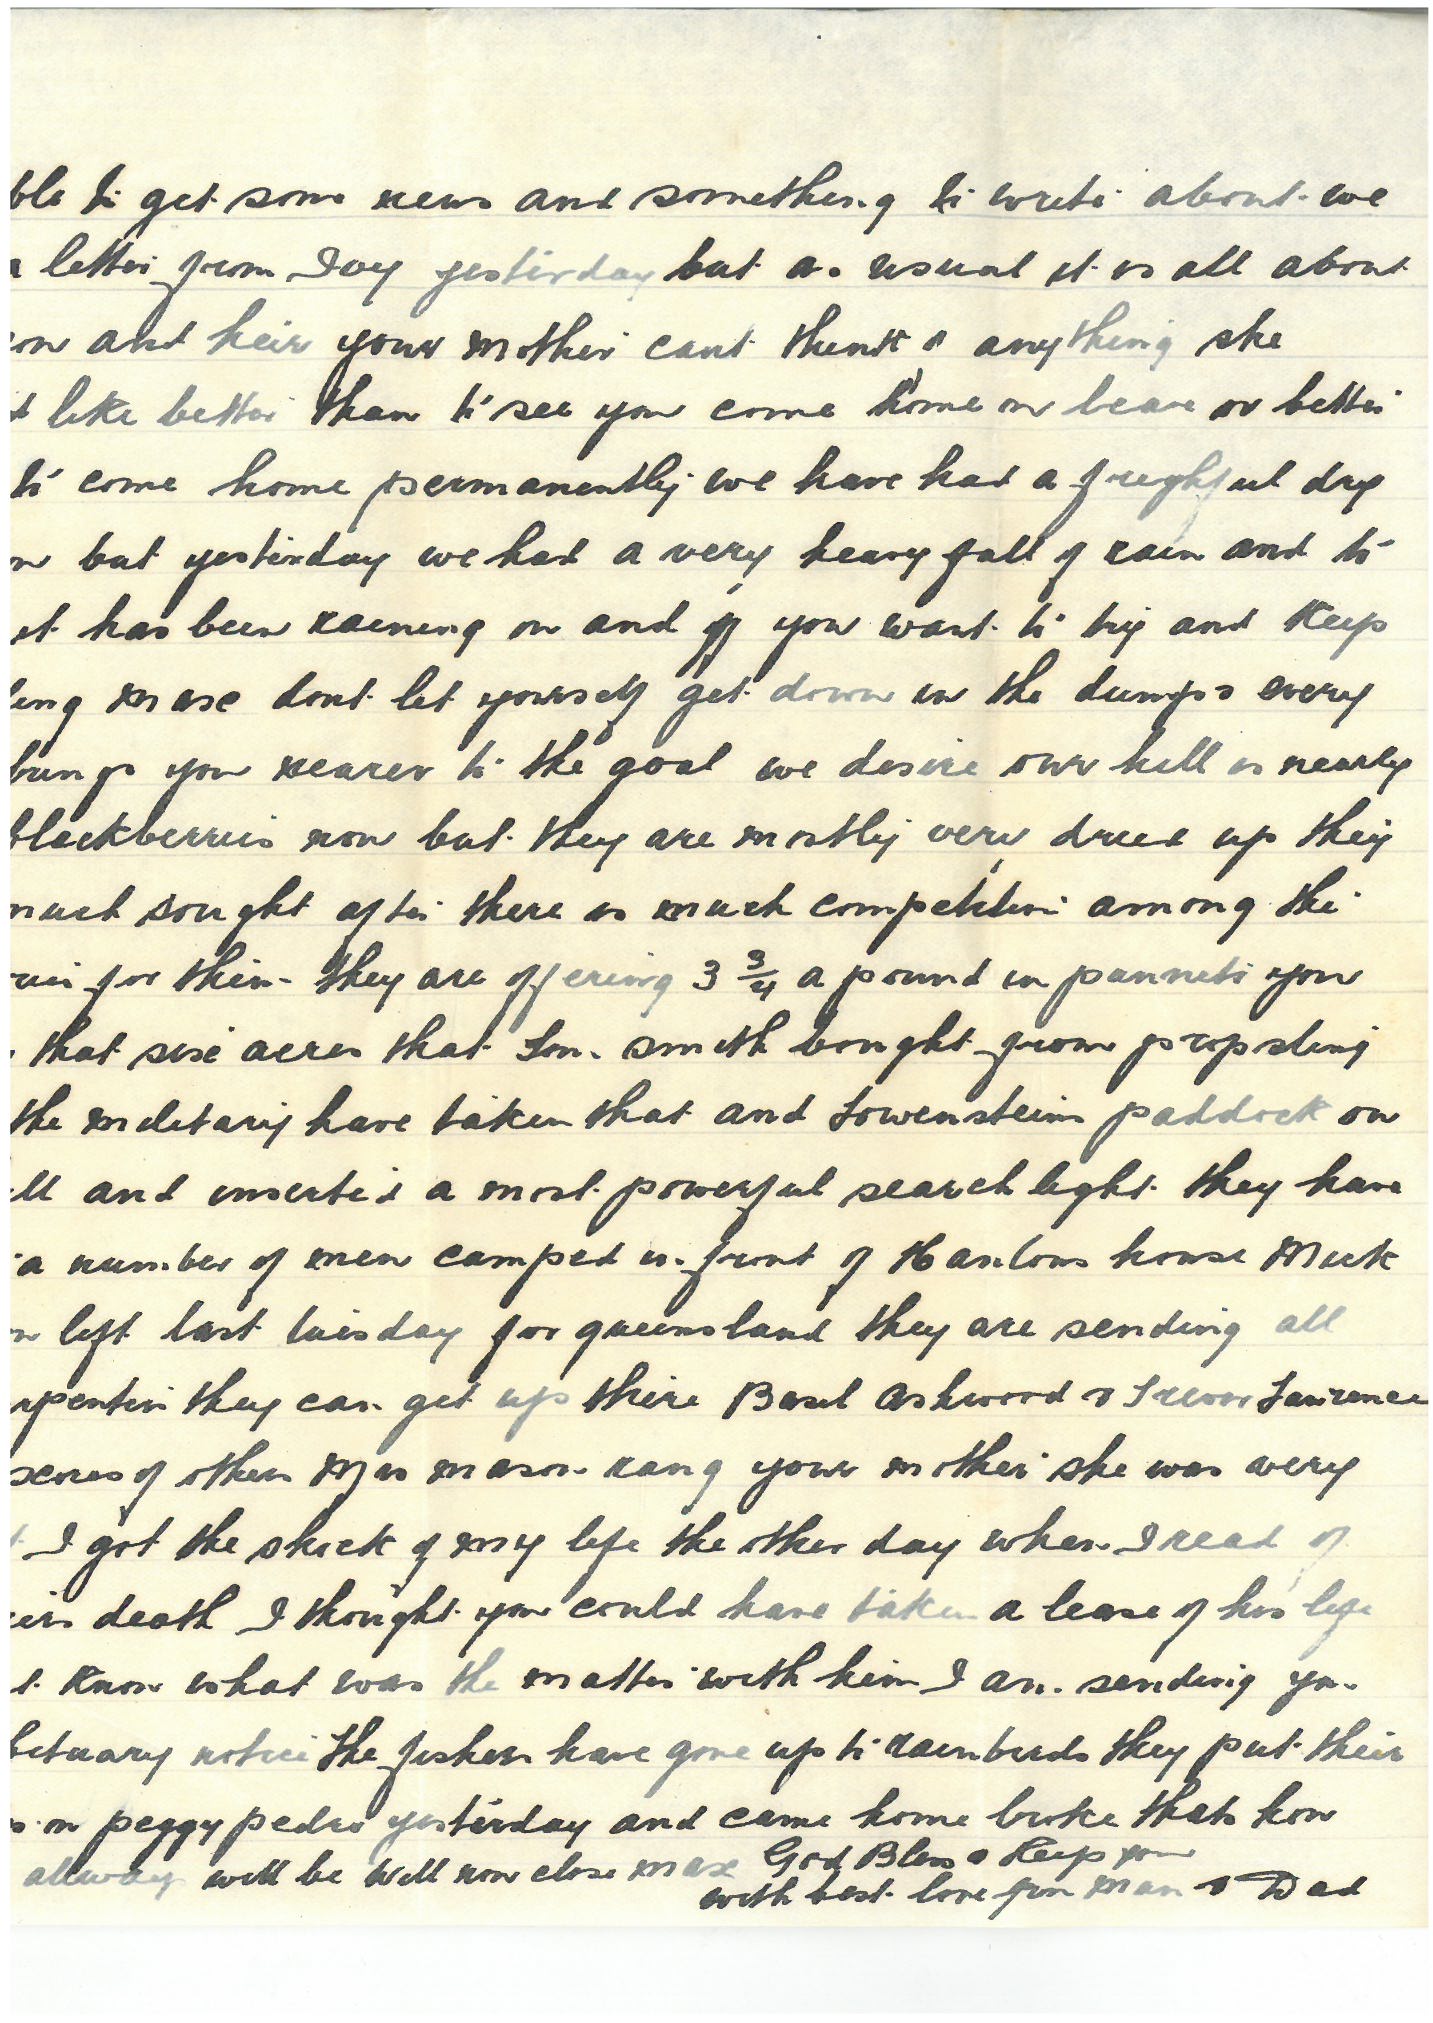 ble to get some news and something to write about we
a letter from Ivy yesterday but as usual it is all about
on and heir your mother cant think o anything she
d like better than to see you come home on leave or better
to come home permanently we have had a frighful dry
n but yesterday we had a very heavy fall of rain and to
it has been raining on and of you want to try and keep
ling maxe dont let yourself get down in the dumps every
brings you nearer to the goal we desire our hill is nearly
blackberries now but they are mostly very dried up they
much sought after there is much competition among the
ries for them they are offering 3 3/4 a pound in punnets you
that sixe acres that Tom smith bought from propsting
the military have taken that and Lowensteins paddock on
ill and inserted a most powerful search light they have
a number of men camped in front of Hanlons house Mick
n left last tuesday for queensland they are sending all
rpenters they can get up there Basil ashwood & Trevor Lawrence
scores of others Mrs mason rang your mother she was very
t I got the shock of my life the other day when I read of
eirs death I thought you could have taken a lease of his life
t know what was the matter with him I am sending you
bituary notice the fishers have gone up to rainbirds they put their
s on peggy pedro yesterday and came home broke thats how
allways will be Well now close maxe God Bless & Keep you
with best love from Mum & Dad